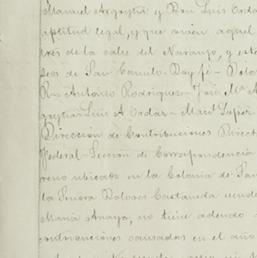 Manuel Argaytú y Don Luis Orda
aptitud legal, y que viven aquel
tres de la calle del Naranjo, y este
seo de San Camilo - Doy fé - Dolo
Rio Antonio Rodriguez - José Ma A
Luis A. Ordas - Man! Lopez
Dirección de Contribuciones Direct
Federal - Sección de Correspondencia
reno ubicado en la Colonia de San
la Señora Dolores Castañeda vende
Maria Anaya, no tiene adeudo
contribuciones causadas en el año